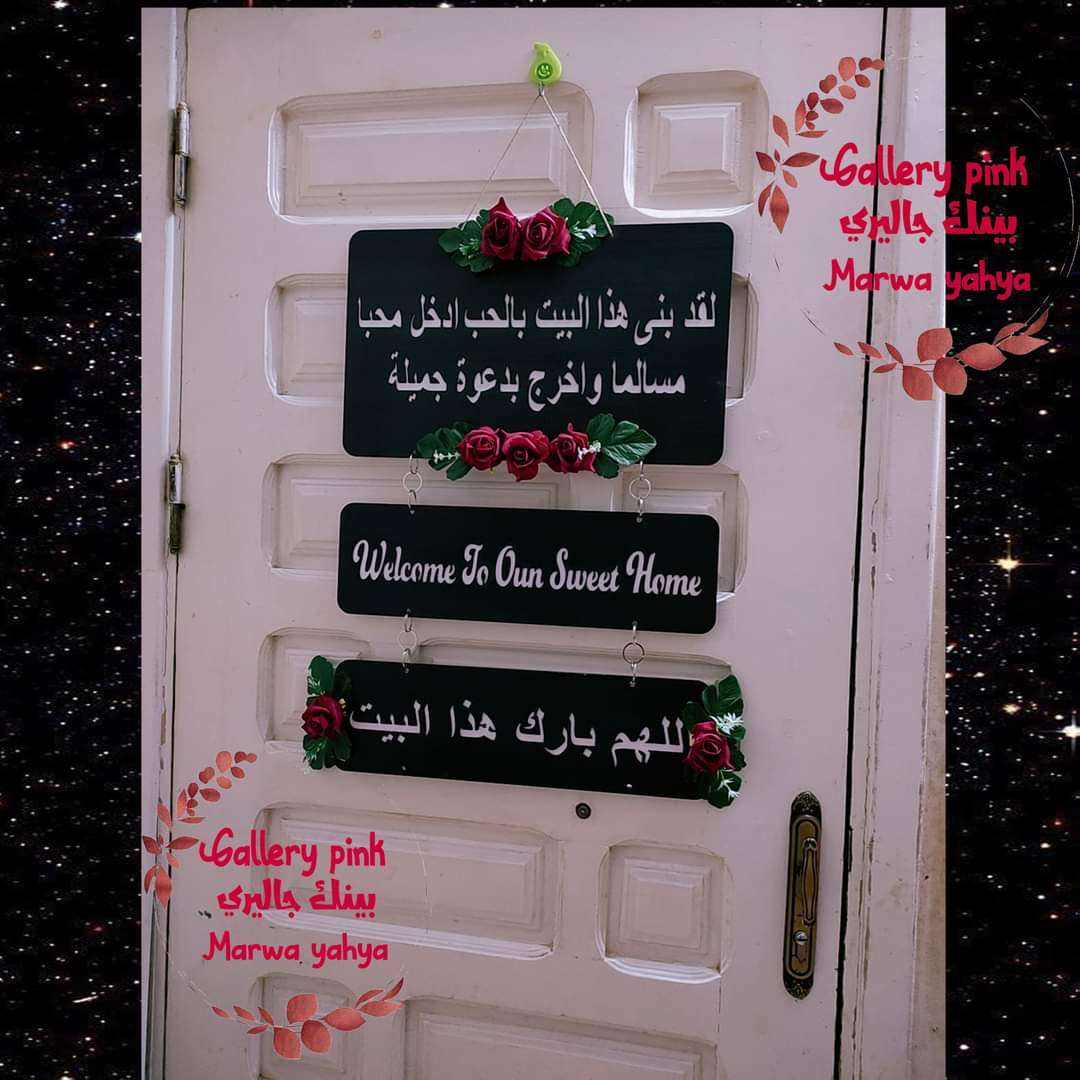 لقد بنى هذا البيت بالحب ادخل محبا
مسالما واخرج بدعوة جميلة
Welcome To Oun Sweet Home
اللهم بارك هذا البيت
Gallery pink
بينك جاليري
Marwa yahya
Gallery pink
بينك جاليري
Marwa yahya